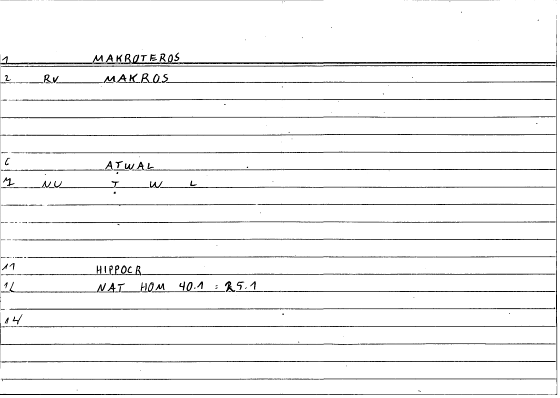 1 MAKROTEROS
2 RV MAKROS
6 AṬWAL
NU Ṭ W L
11 HIPPOCR
12 NAT HOM 40.1 : 25.1
14